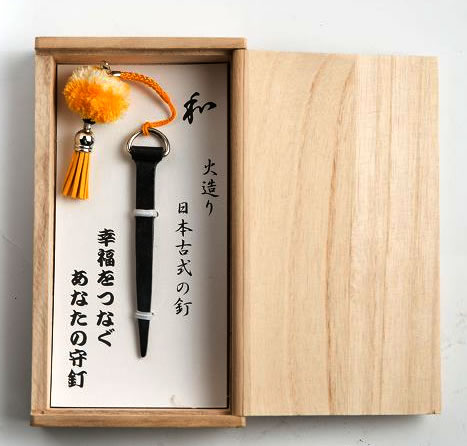 和
火造り
日本古式の釘
幸福をつなぐ
あなたの守釘